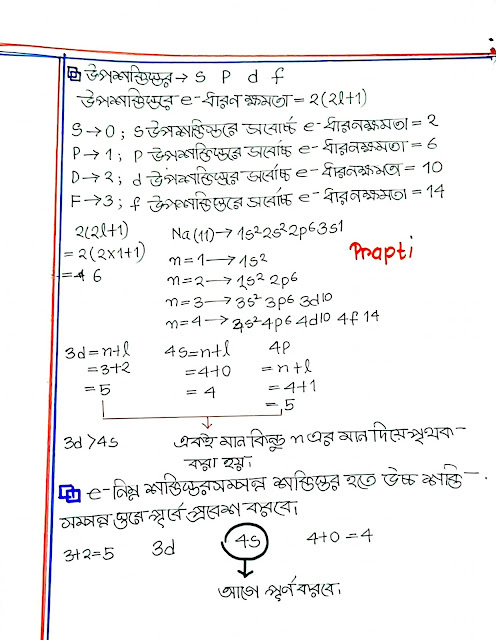 উপশক্তিস্তর → s p d f
উপশক্তিস্তরে e- ধারন ক্ষমতা = 2(2l+1)
S → 0 ; s উপশক্তিস্তরে সর্বোচ্চ e- ধারনক্ষমতা = 2
P → 1 ; p উপশক্তিস্তরে সর্বোচ্চ e- ধারনক্ষমতা = 6
D → 2 ; d উপশক্তিস্তরে সর্বোচ্চ e- ধারনক্ষমতা = 10
F → 3 ; f উপশক্তিস্তরে সর্বোচ্চ e- ধারনক্ষমতা = 14
2(2l+1)
= 2(2x1+1)
= 6
Na(11) → 1s² 2s² 2p6 3s1
n = 1 → 1s²
n = 2 → 2p6
n = 3 → 3s² 3p6 3d10
n = 4 → 4p6 4d10 4f 14
Prapti
3d = n+l
= 3+2
= 5
4s = n+l
= 4+0
= 4
4p
= n+l
= 4+1
= 5
3d > 4s
একই মান কিন্তু n এর মান দিয়ে পৃথক
করা হয়।
e- নিম্ন শক্তিস্তরসম্পন্ন শক্তিস্তর হতে উচ্চ শক্তি-
সম্পন্ন স্তরে পূর্বে প্রবেশ করবে।
3+2=5 3d 4s 4+0 = 4
আগে পূর্ন করবে।